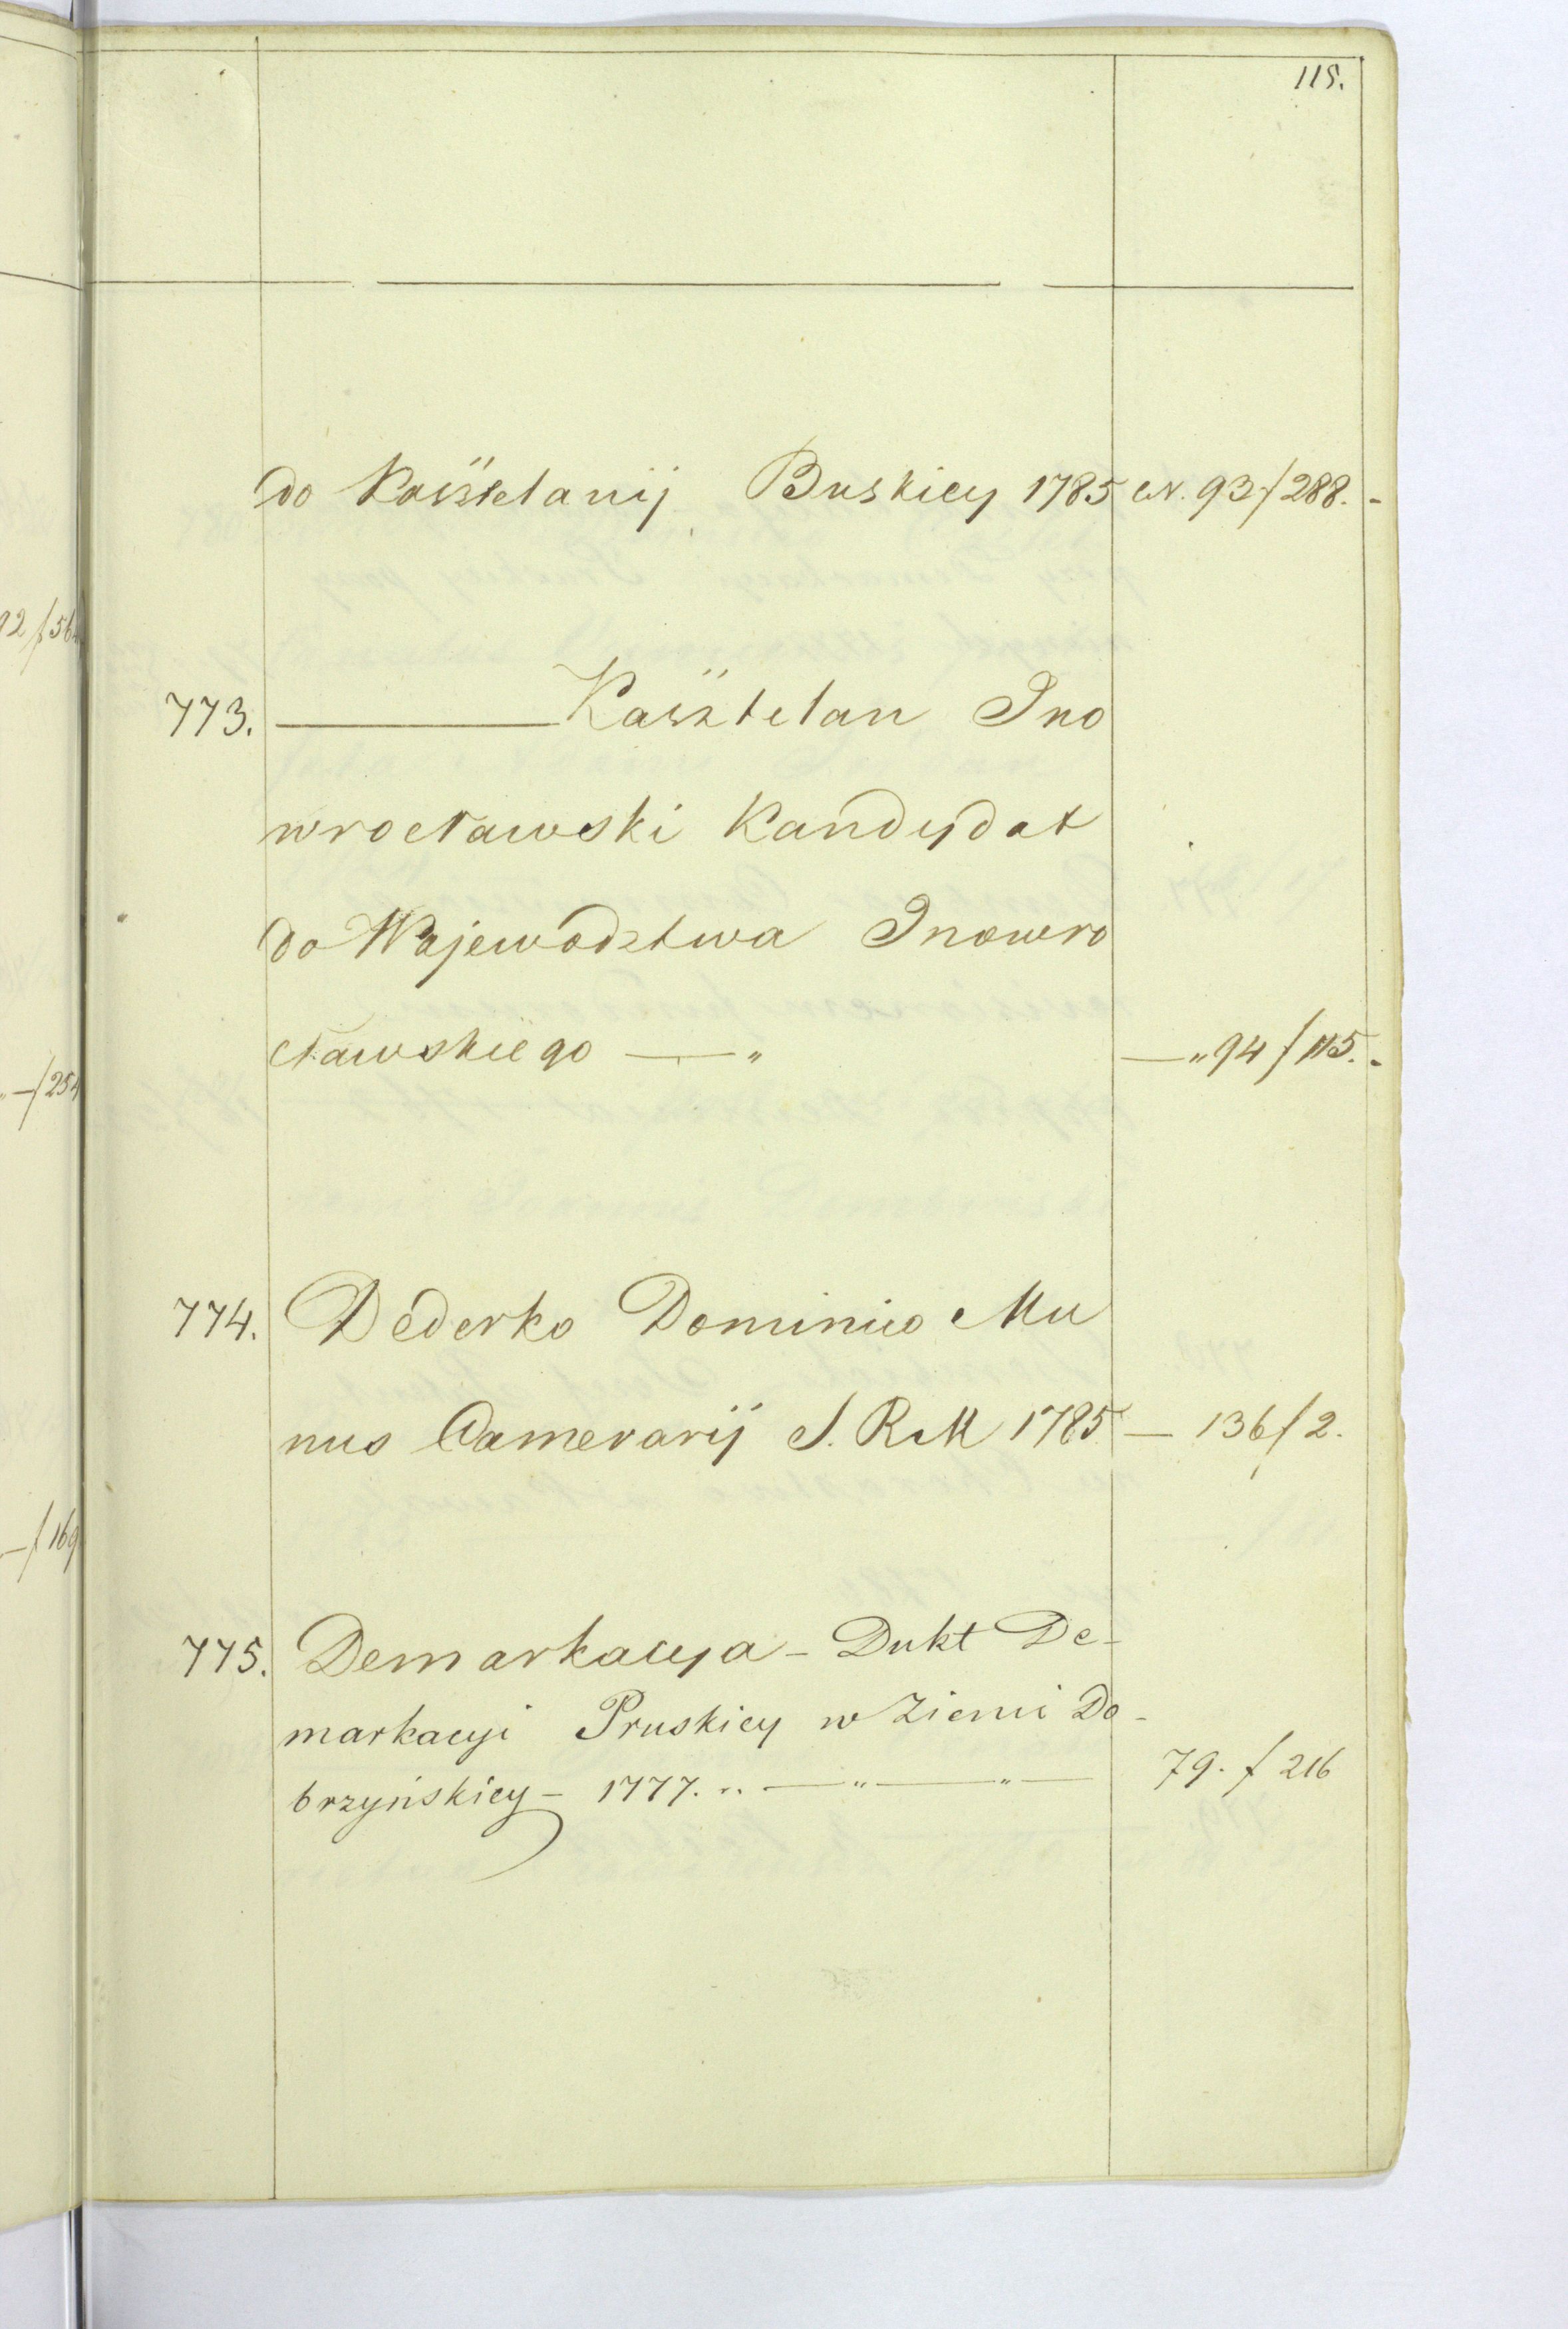 115.
do Kasztelanij Buskiey 1785 N. 93 f 288.
773. Kasztelan Ino
wrocławski Kandydat
do Wojewodztwa Inowro
cławskiego — " —" 94 f 115.
774. Dederko Dominico Mu
nus Camerarij S. R. M 1785 — 136 f 2.
775. Demarkacya - Dukt De-
markacyi Pruskiey w Ziemi Do-
brzyńskiey - 1777. .. — " — " — 79. f 216